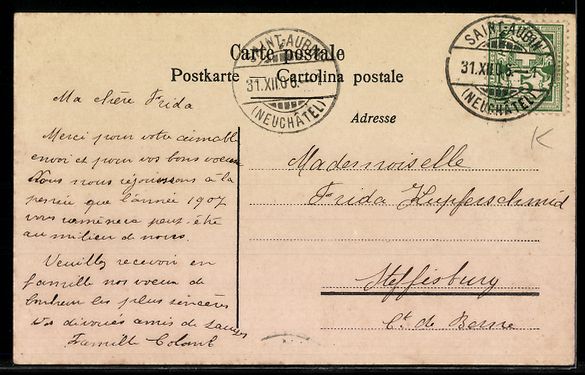 Carte postale
Postkarte - Cartolina postale
Adresse
SAINT-AUBIN
31.XII.06.
(NEUCHÂTEL)
SAINT-AUBIN
31.XII.06.
(NEUCHÂTEL)
K
Ma chère Frida
Merci pour votre aimable
envoi et pour vos bons voeux
Nous nous réjouissons à la
pensée que l'année 1907
vous ramènera peut-être
au milieu de nous.
Veuillez recevoir en
famille nos voeux de
bonheur les plus sincères
Vos dévoués amis de Sauges
Famille Colomb
Mademoiselle
Frida Kupferschmid
Steffisburg
Ct. de Berne